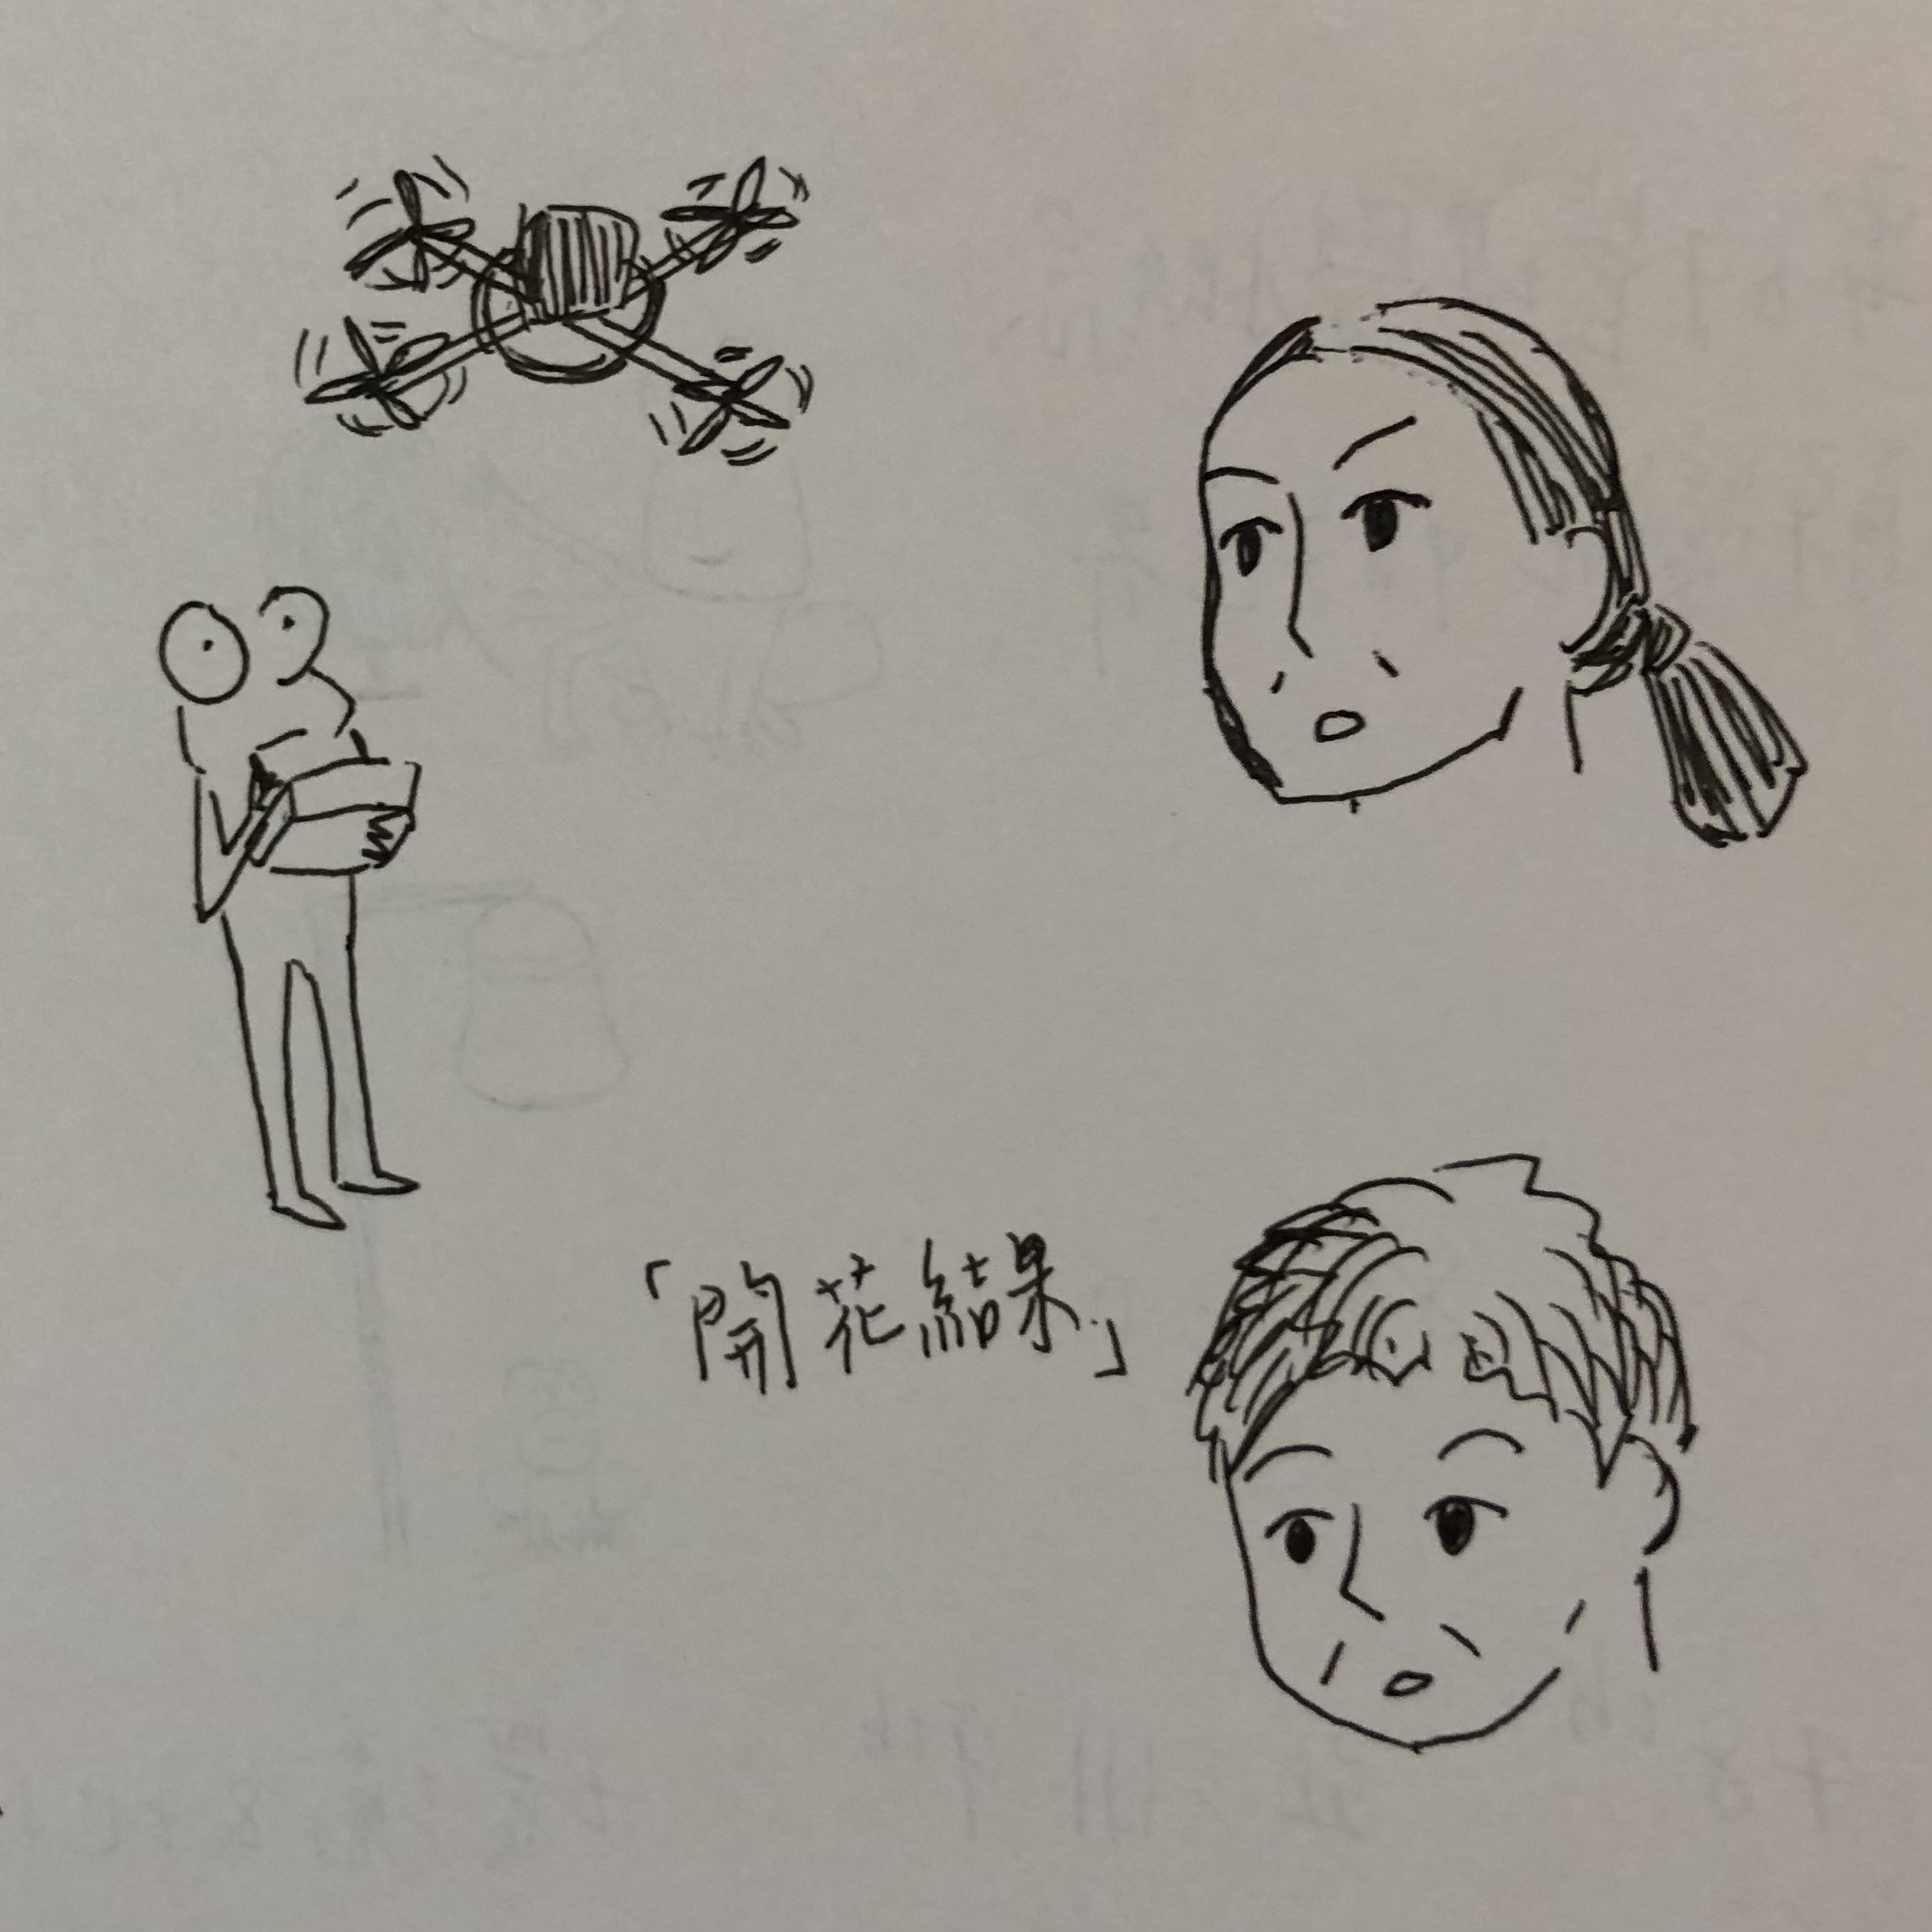 「開花結果」